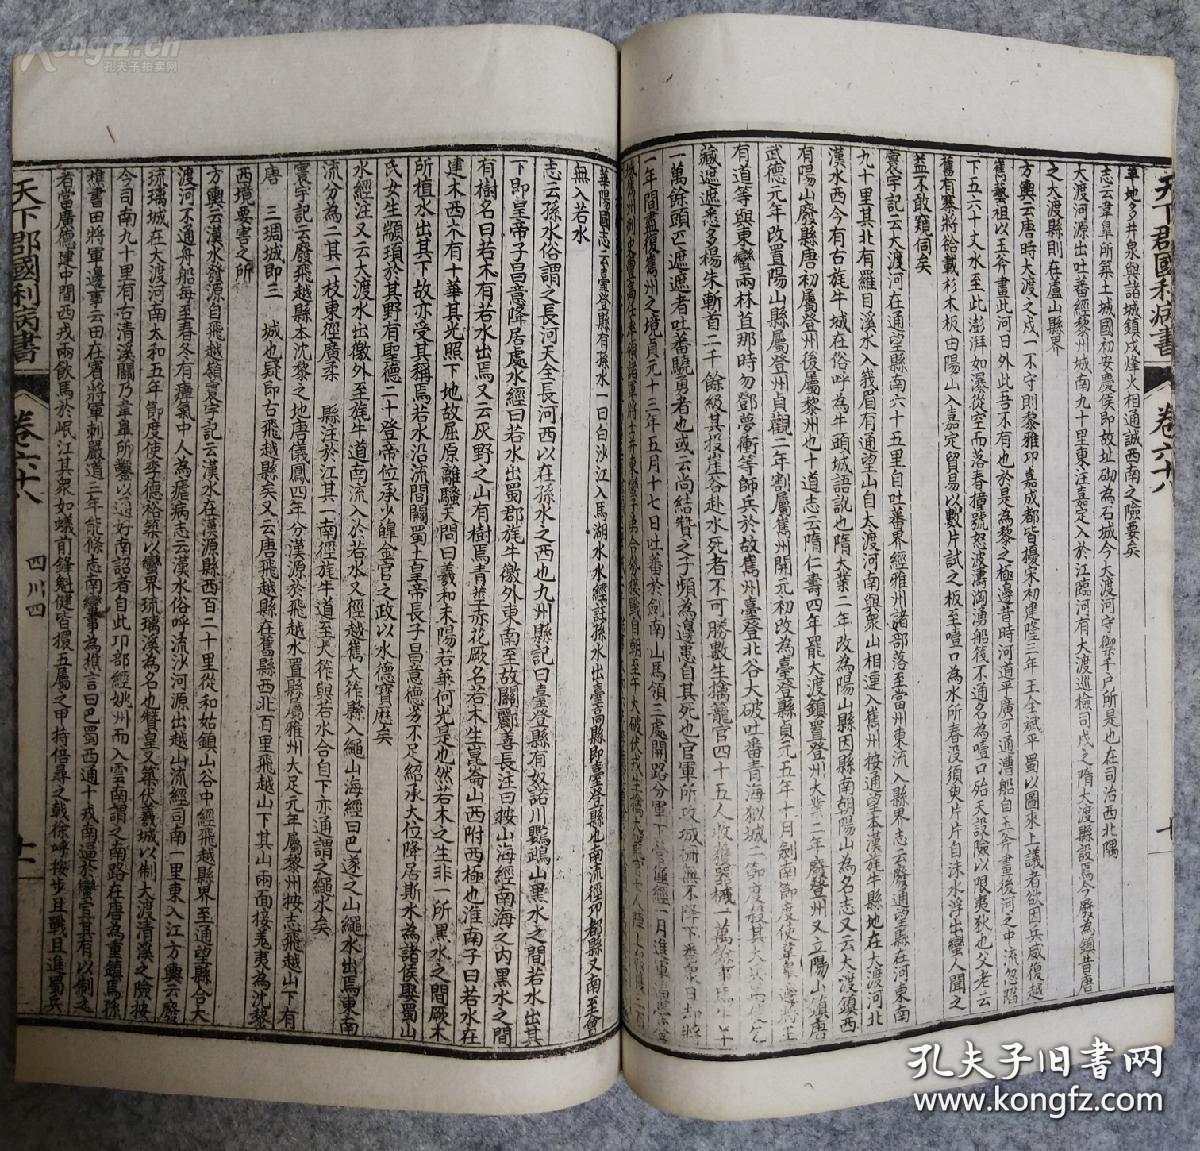 天下郡國利病書 卷六十八
草地多井泉與諸城鎮戍烽火相通誠西南之險要矣
志云韋臯所築土城國初安慶侯即故址砌為石城今大渡河守禦千戶所是也在司治西北隅
大渡河源出吐蕃經黎州城南九十里東注嘉定入於江臨河有大渡巡檢司戍之隋大渡縣設焉今廢為鎮昔唐
之大渡縣則在盧山縣界
方輿云唐時大渡之戍一不守則黎雅邛嘉成都皆擾宋初建隆三年王全斌平蜀以圖來上議者欲因兵威復越
嶲藝祖以玉斧畫此河曰外此吾不有也於是為黎之極邊昔時河道平廣可通漕船自玉斧畫後河之中流忽陷
下五六十丈水至此澎湃如瀑從空而落舂撞號怒波濤洶湧船筏不通名為噎口殆天設險以限夷狄也父老云
舊有寨將欲載杉木板由陽山入嘉定貿易以數片試之板至噎口為水所舂沒須臾片片自沫水浮出蠻人聞之
益不敢窺伺矣
寰宇記云大渡河在通望縣南六十五里自吐蕃界經雅州諸部落至當州東流入縣界志云廢通望縣在河東南
九十里其北有羅目溪水入我眉有通望山自大渡河南與衆山相連入嶲州按通望本漢旄牛縣地在大渡河北
漢水西今有古旄牛城在俗呼為牛頭城語訛也隋大業二年改為陽山縣因縣南朝陽山為名志又云大渡鎮西
有陽山廢縣唐初屬登州後屬黎州也十道志云隋仁壽四年罷大渡鎮置登州大業二年廢登州又立陽山鎮唐
武德元年改置陽山縣屬登州貞觀二年割屬嶲州開元初改為臺登縣貞元五年十月劍南節度使韋臯遣將王
有道等與東蠻兩林苴那時勿鄧夢衝等帥兵於故嶲州臺登北谷大破吐蕃青海獵城二節度殺其大兵馬使乞
藏遮遮悉多楊朱斬首二千餘級其投崖谷赴水死者不可勝數生擒籠官四十五人收獲器械一萬餘事馬牛羊
一萬餘頭疋遮遮者吐蕃驍勇者也或云尚結贊之子頻為邊患自其死也官軍所攻城柵無不降下悉衆日却將
一年間盡復嶲州之境貞元十三年五月十七日吐蕃於劍南山馬嶺三處開路分軍下營僅經一月進軍
華陽國志云臺登縣有孫水一曰白沙江入馬湖水水經註孫水出臺高縣即臺登縣也南流逕邛都縣又南至會
無入若水
志云孫水俗謂之長河天全長河西以在孫水之西也九州縣記曰臺登縣有奴諾川鸚鵡山黑水之間若水出其
下即皇帝子昌意降居處水經曰若水出蜀郡旄牛徼外東南至故關酈善長注曰按山海經南海之內黑水之間
有樹名曰若木有若水出焉又云灰野之山有樹焉青莖赤花厥名若木生崑崙山西附西極也淮南子曰若水在
建木西木有十華其光照下地故屈原離騷天問曰羲和未陽若華何光是也然若木之生非一所黑水之間厥木
所植水出其下故亦受其稱焉若水沿流間關蜀土皇帝長子昌意德劣不足紹承大位降居斯水為諸侯娶蜀山
氏女生顓頊於其野有聖德二十登帝位承少皥金官之政以水德寶歷矣
水經注又云大渡水出徼外至旄牛道南流入於若水又經越嶲大筰縣入繩山海經曰巴遂之山繩水出焉東南
流分為二其一枝東徑廣柔 縣注於江其一南徑旄牛道至大筰與若水合自下亦通謂之繩水矣
寰宇記云廢飛越縣本沈黎之地唐儀鳳四年分漢源於飛越水置縣屬雅州大足元年屬黎州按志飛越山下有
唐 三琱城即三 城也疑即古飛越縣矣又云唐飛越縣在舊縣西北百里飛越山下其山兩面接羗夷為沈黎
西境要害之所
方輿云漢水發源自飛越嶺寰宇記云漢水在漢源縣西百二十里從和姑鎮山谷中經飛越縣界至通望縣合大
渡河不通舟船每至春冬有瘴氣中人為瘧病志云漢水俗呼流沙河源出越山流經司南一里東入江方輿云廢
琉璃城在大渡河南太和五年節度使李德裕築以蠻界琉璃溪為名也贊皇又築伏羲城以制大渡清溪之險按
今司南九十里有古清溪關乃韋臯所鑿以通好南詔者自此邛部經姚州而入雲南謂之南路在唐為重鎮焉孫
樵書田將軍邊事云田在賓將軍刺嚴道三年能條悉南蠻事為樵言曰巴蜀西通于戎南逼於蠻宜其有以制之
者當廣德建中間西戎兩飲馬於岷江其衆如蟻前鋒魁健皆擐五屬之甲持倍尋之戟徐呼按步且戰且進蜀兵
天下郡國利病書 卷六十八 四川四 十一
Kongfz.cn
孔夫子拍卖网
孔夫子旧书网
www.kongfz.com